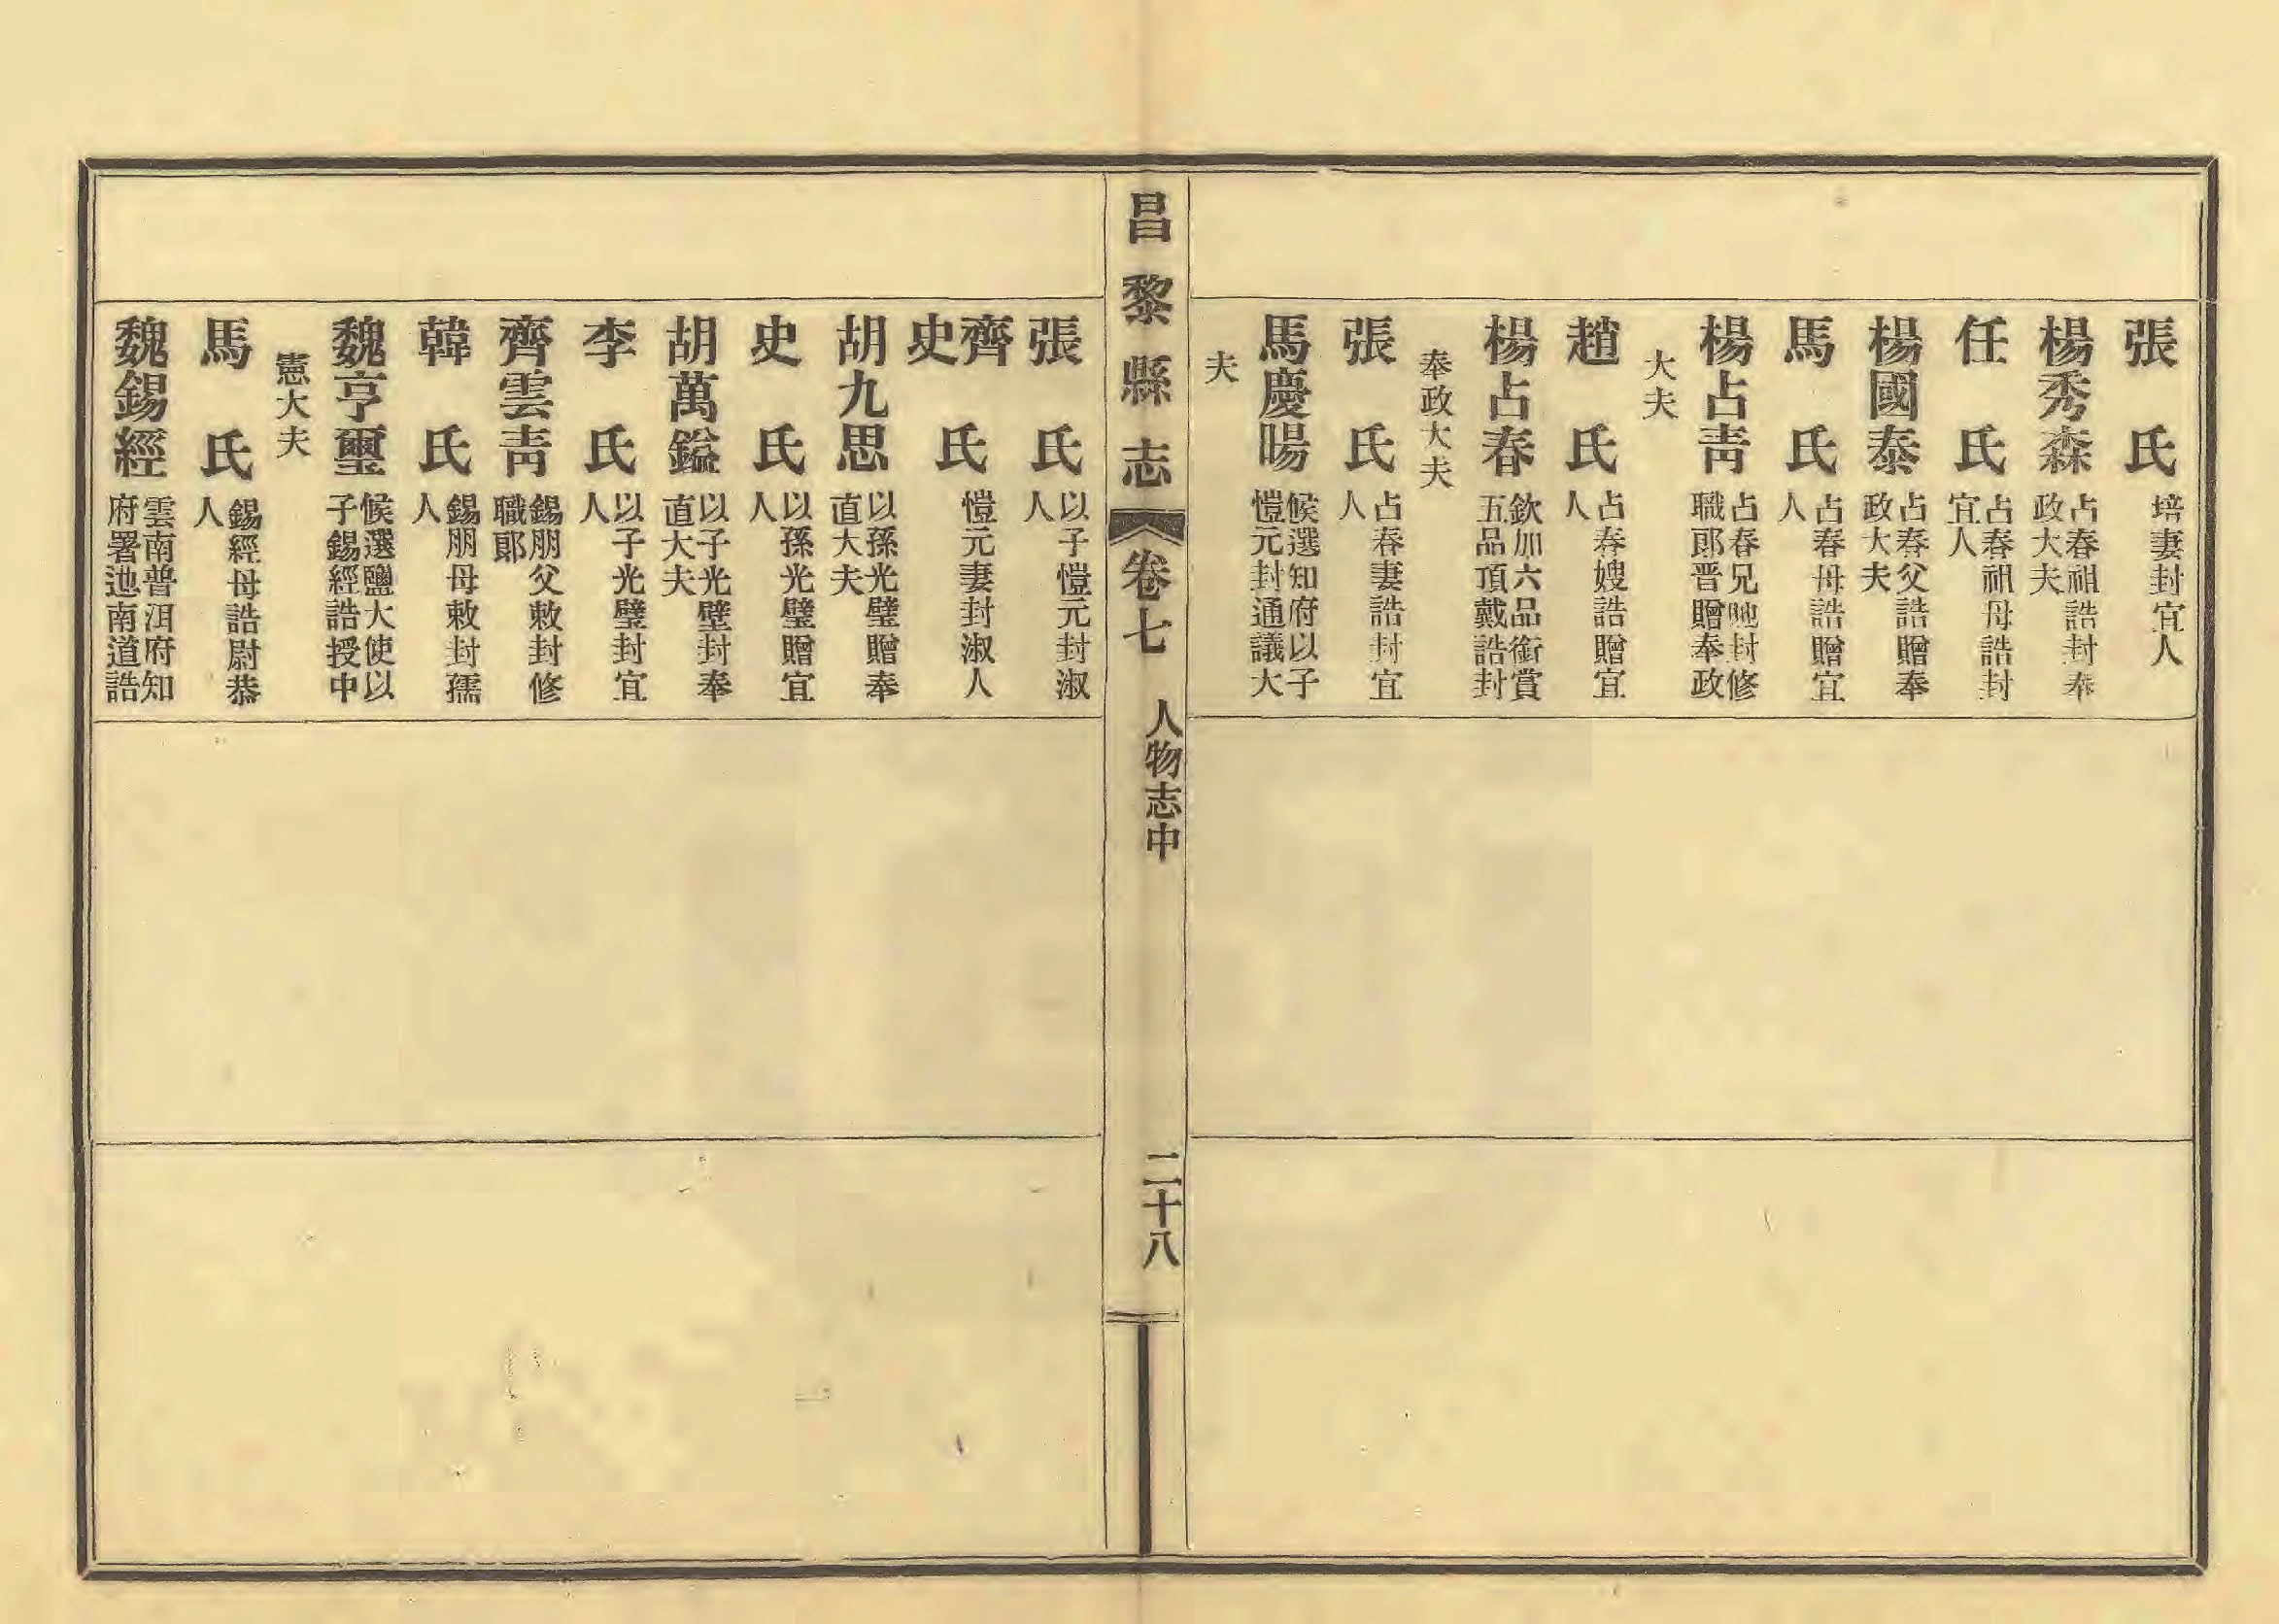 張　氏
培妻封宜人
楊秀森
占春祖誥封奉
政大夫
任　氏
占春祖母誥封
宜人
楊國泰
占春父誥贈奉
政大夫
馬　氏
占春母誥贈宜
人
楊占青
占春兄貤封修
職郎晋贈奉政
大夫
趙　氏
占春嫂誥贈宜
人
楊占春
欽加六品銜賞
五品頂戴誥封
奉政大夫
張　氏
占春妻誥封宜
人
馬慶暘
候選知府以子
愷元封通議大
夫
昌黎縣志
卷七
人物志中
二十八
張　氏
以子愷元封淑
人
齊
史　氏
愷元妻封淑人
胡九思
以孫光璧贈奉
直大夫
史　氏
以孫光璧贈宜
人
胡萬鎰
以子光璧封奉
直大夫
李　氏
以子光璧封宜
人
齊雲青
錫朋父敕封修
職郎
韓　氏
錫朋母敕封孺
人
魏亨璽
候選鹽大使以
子錫經誥授中
憲大夫
馬　氏
錫經母誥尉恭
人
魏錫經
雲南普洱府知
府署迆南道誥